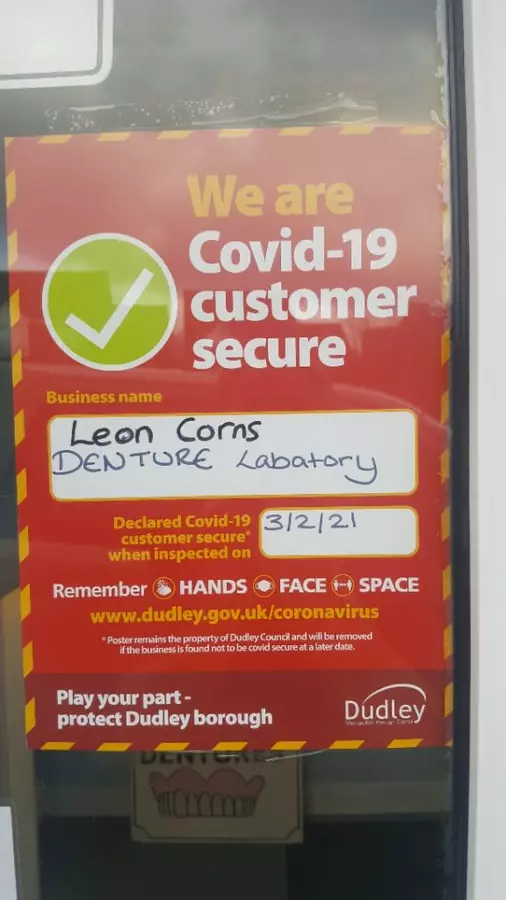 We are
Covid-19
customer
secure
Business name
Leon Corns
DENTURE Labatory
Declared Covid-19
customer secure*
when inspected on
3/2/21
Remember HANDS FACE SPACE
www.dudley.gov.uk/coronavirus
* Poster remains the property of Dudley Council and will be removed
if the business is found not to be covid secure at a later date.
Play your part -
protect Dudley borough
Dudley